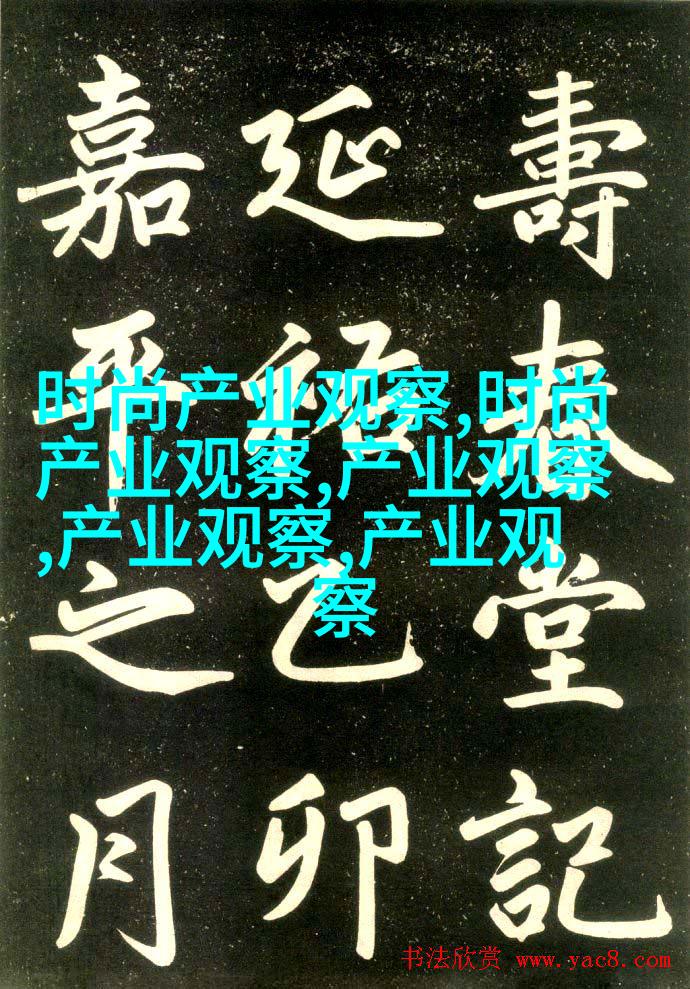 壽春堂記
延祐乙卯
嘉平之月
时尚产业观察,时尚
产业观察,产业观察
,产业观察,产业观
察
书法欣赏 www.yac8.com